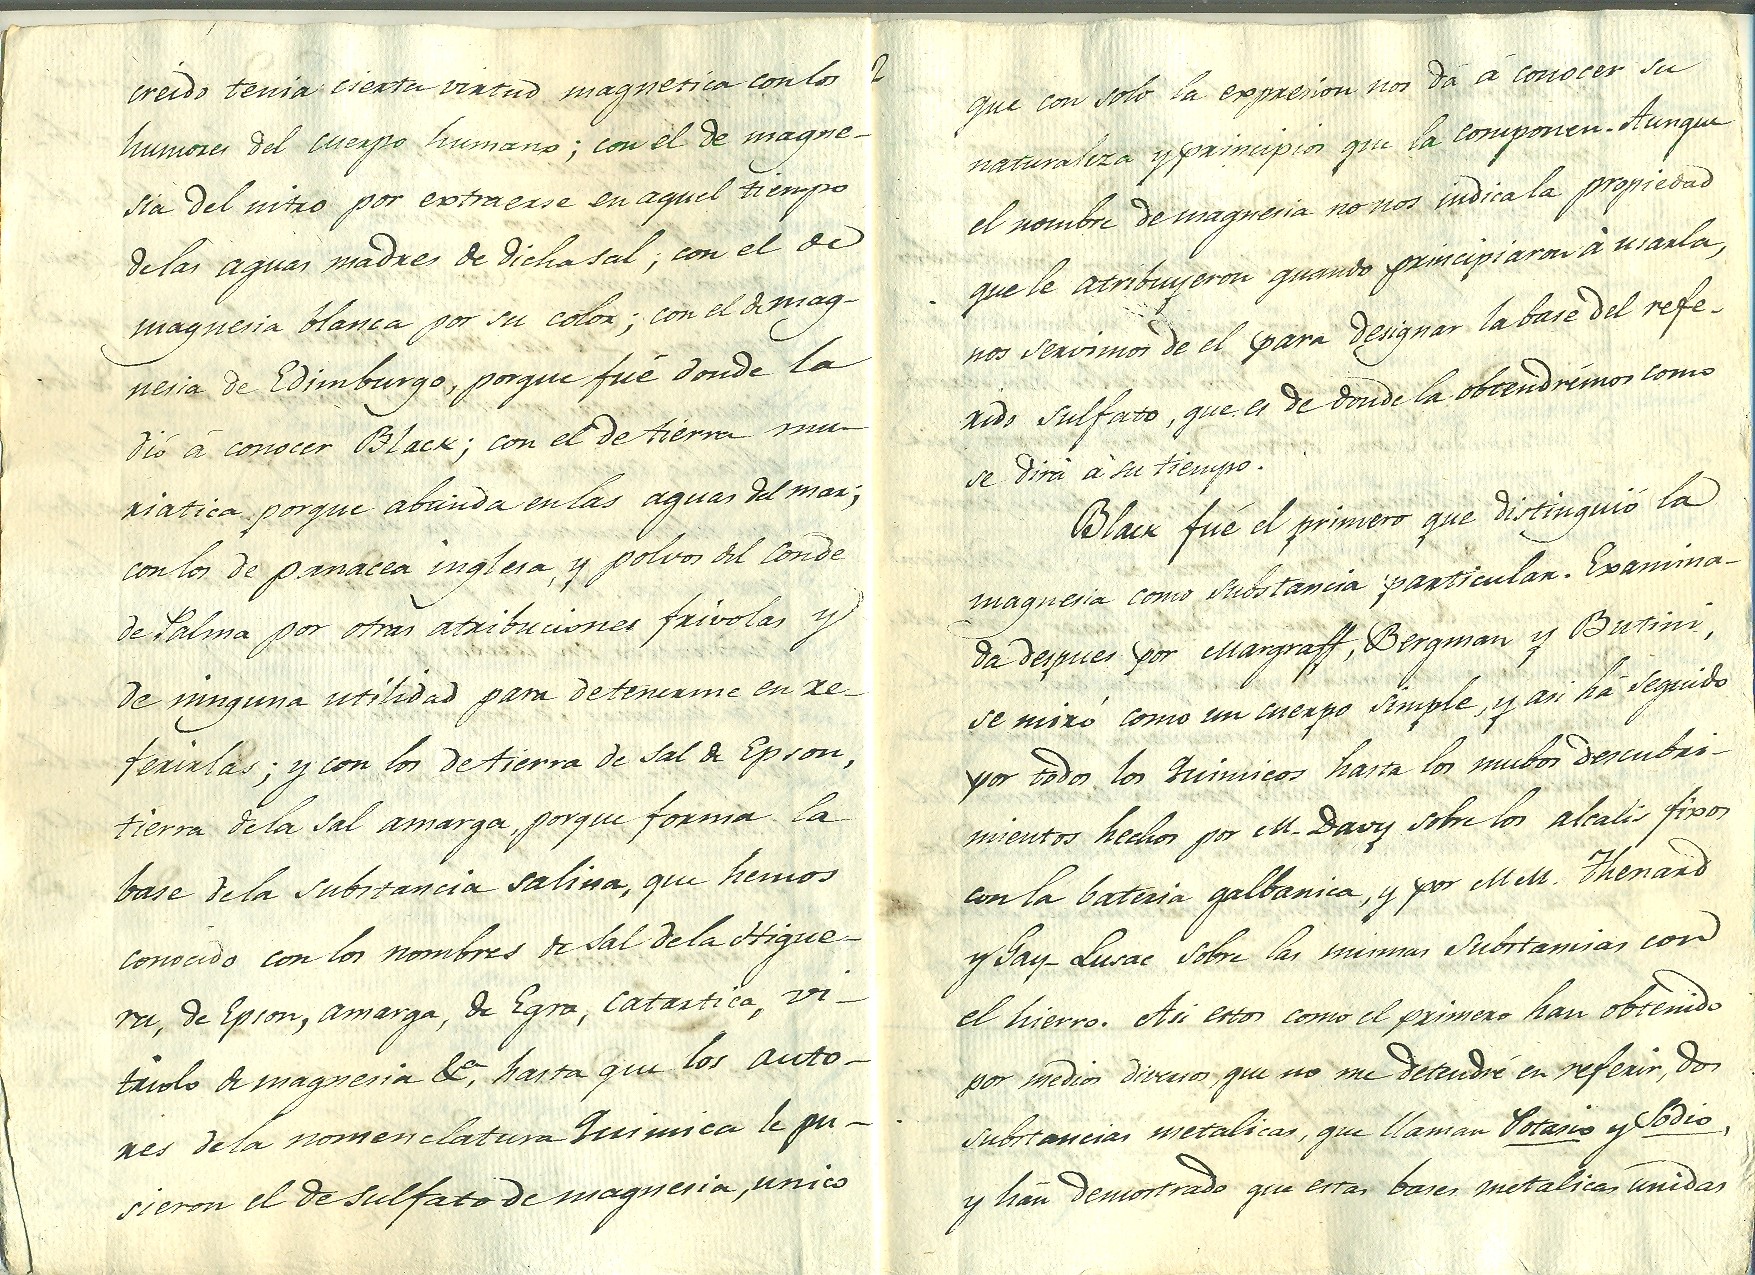 creido tenia cierta virtud magnetica con los
humores del cuerpo humano; con el de magne-
sia del nitro por extraerse en aquel tiempo
de las aguas madres de dicha sal; con el de
magnesia blanca por su color; con el de mag-
nesia de Edimburgo, porque fué donde la
dió á conocer Black; con el de tierra mu-
riatica porque abunda en las aguas del mar;
con los de panacea inglesa, y polvos del Conde
de Palma por otras atribuciones frivolas y
de ninguna utilidad para detenerme en re-
ferirlas; y con los de tierra de sal de Epson,
tierra de la sal amarga, porque forma la
base de la substancia salina, que hemos
conocido con los nombres de sal de la Higue-
ra, de Epson, amarga, de Egra, catartica, vi-
triolo de magnesia &a, hasta que los auto-
res de la nomenclatura Quimica le pu-
sieron el de sulfato de magnesia, unico
2
que con solo la expresion nos dá á conocer su
naturaleza y principios que la componen. Aunque
el nombre de magnesia no nos indica la propiedad
que le atribuyeron quando principiaron à usarla,
nos servimos de el para designar la base del refe-
rido sulfato, que es de donde la obtendrémos como
se dirá à su tiempo.
Black fué el primero que distinguió la
magnesia como substancia particular. Examina-
da despues por Margraff, Bergman y Butini,
se miró como un cuerpo simple, y asi há seguido
por todos los Quimicos hasta los nuebos descubri-
mientos hechos por M. Davy sobre los alcalis fixos
con la bateria galbanica, y por M M. Thenard
y Gay-Lusac sobre las mismas substancias con
el hierro. Asi estos como el primero han obtenido
por medios diversos, que no me detendré en referir, dos
substancias metalicas, que llaman Potasio y Sodio,
y hán demostrado que estas bases metalicas unidas